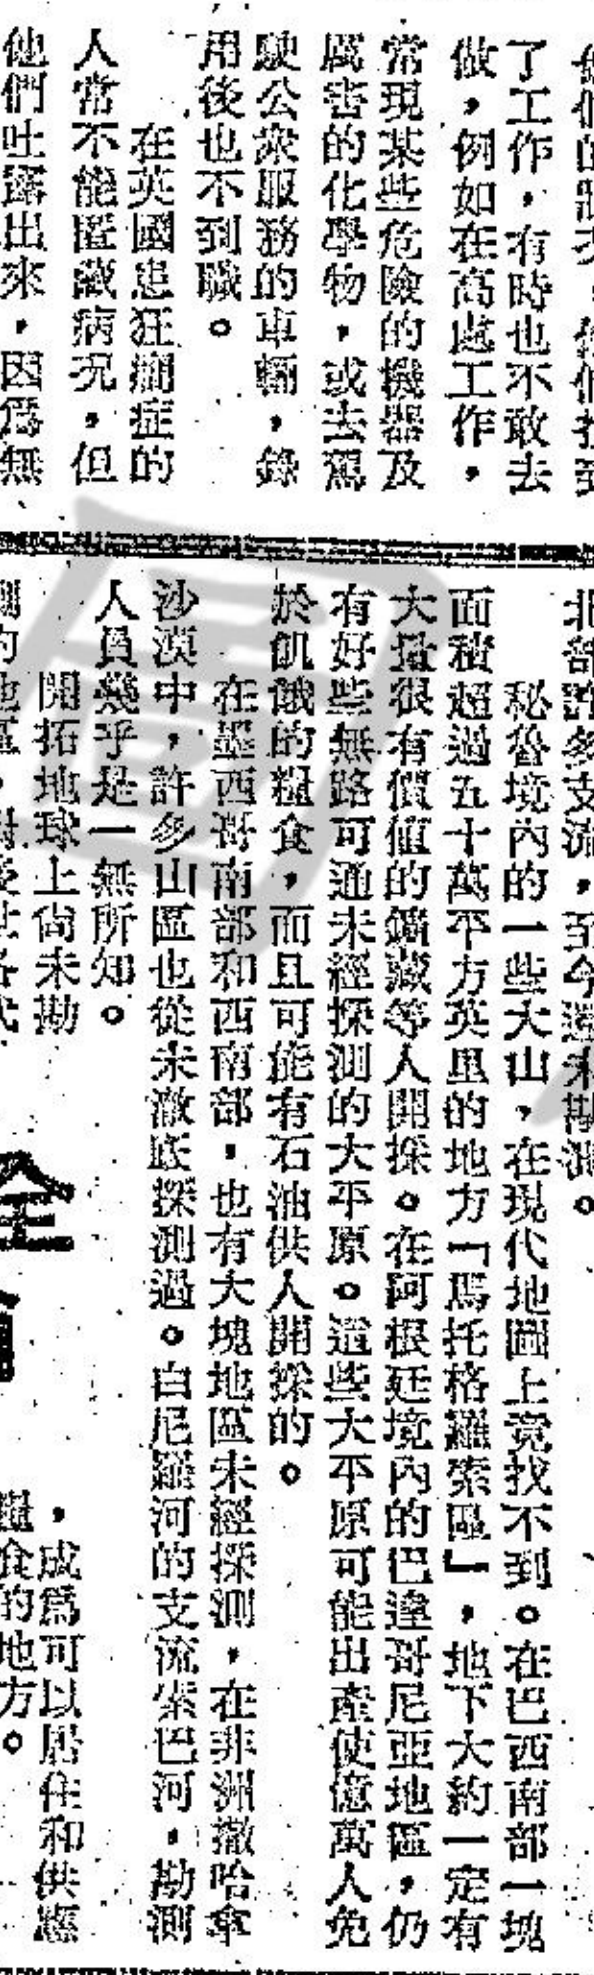 了工作，有時也不敢去
做，例如在高處工作，
常現某些危險的機器及
厲害的化學物，或去駕
駛公衆服務的車輛，錄
用後也不到職。
在英國患狂癎症的
人常不能匿藏病況，但
他們吐露出來，因爲無
北部許多支流，至今還未勘測。
秘魯境內的一些大山，在現代地圖上竟找不到。在巴西南部一塊
面積超過五十萬平方英里的地方「馬托格羅索區」，地下大約一定有
大量很有價值的鑛藏等人開採。在阿根廷境內的巴達哥尼亞地區，仍
有好些無路可通未經探測的大平原。這些大平原可能出產使億萬人免
於飢餓的糧食，而且可能有石油供人開採的。
在墨西哥南部和西南部，也有大塊地區未經探測，在非洲撒哈拿
沙漠中，許多山區也從未澈底探測過。白尼羅河的支流索巴河，勘測
人員幾乎是一無所知。
開拓地球上尙未勘
測的地區，
，成爲可以居住和供應
糧食的地方。
全
圖